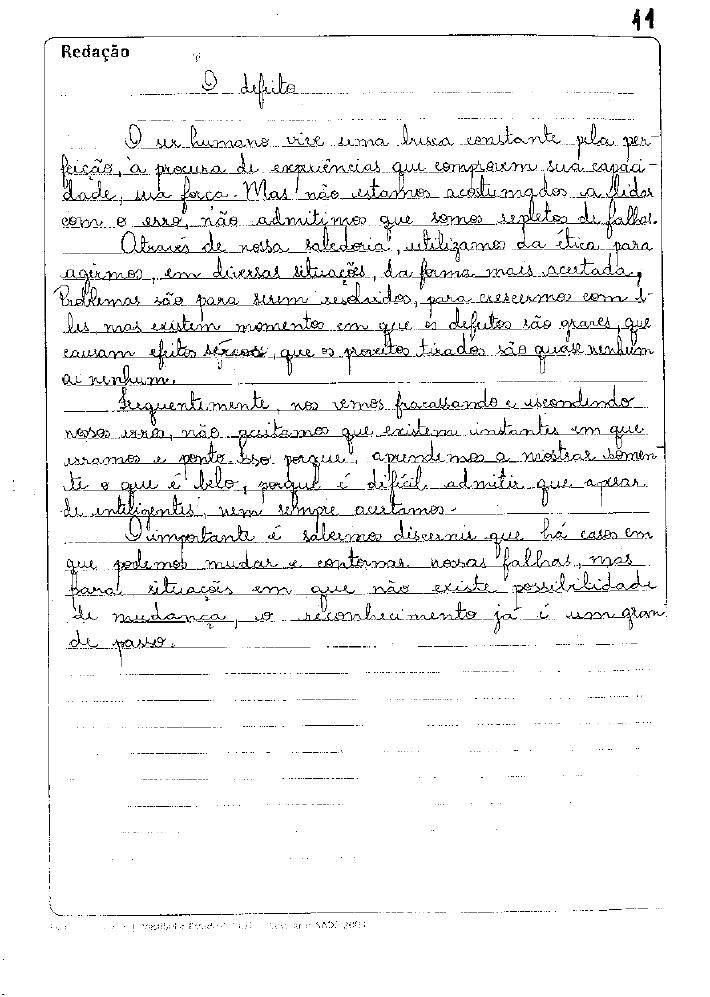 11
Redação
O defeito
O ser humano vive uma busca constante pela per-
feição, à procura de experiências que comprovem sua capaci-
dade, sua força. Mas não estamos acostumados a lidar
com o erro, não admitimos que somos repletos de falhas.
Através de nossa sabedoria, utilizamos da ética para
agirmos, em diversas situações, da forma mais acertada.
Problemas são para serem resolvidos, para crescermos com e-
les, mas existem momentos em que os defeitos são graves, que
causam efeitos sérios, que os proveitos tirados são quase nenhum
ai nenhum.
Frequentemente, nos vemos fracassando e escondendo
nosos erros, não aceitamos que existem instantes em que
erramos e ponto. Isso porque, aprendemos a mostrar somen-
te o que é belo, porque é difícil admitir que apesar
de inteligentes, nem sempre acertamos.
O importante é sabermos discernir que há casos em
que podemos mudar e contornar nossas falhas, mas
para situações em que não existe possibilidade
de mudança, o reconhecimento já é um gran
de passo.